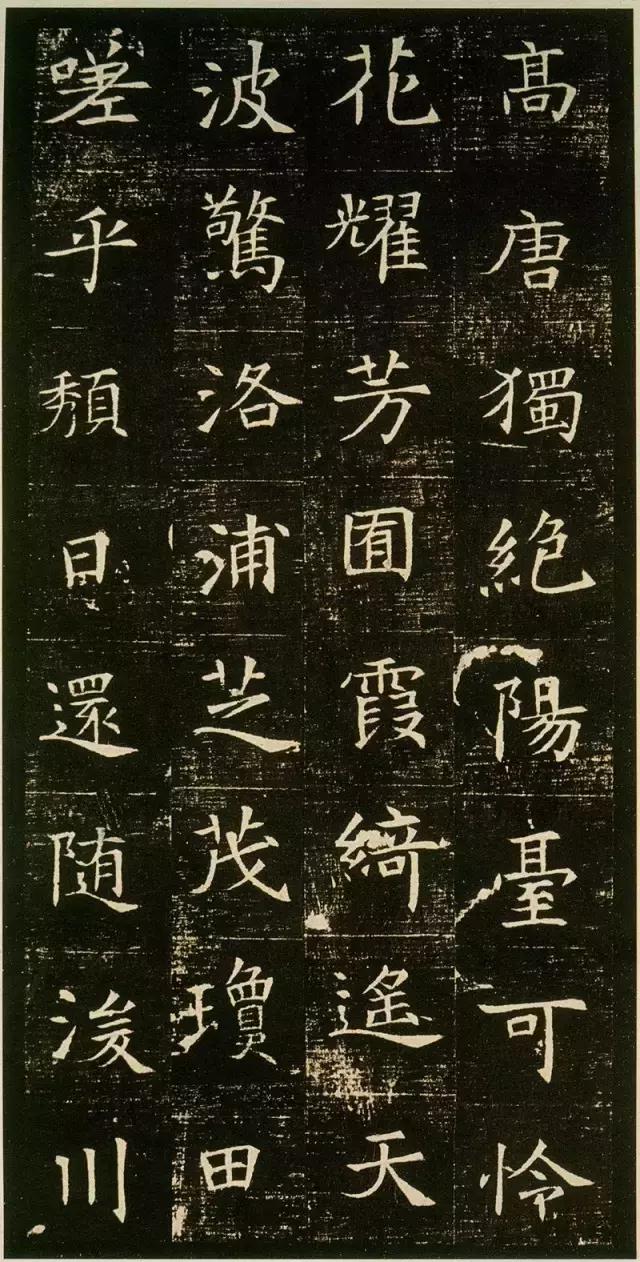 高唐獨絶陽臺可怜
花耀芳囿霞綺遥天
波驚洛浦芝茂瓊田
嗟乎頹日還随浚川